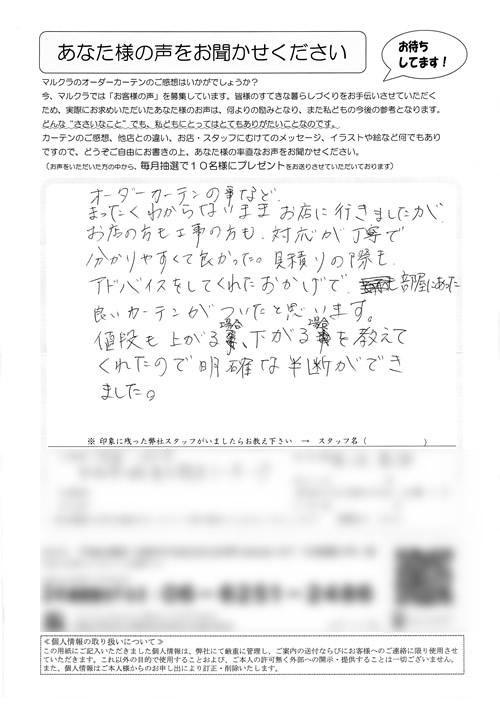 あなた様の声をお聞かせください
お待ち
してます！
マルクラのオーダーカーテンのご感想はいかがでしょうか？
今、マルクラでは「お客様の声」を募集しています。皆様のすてきな暮らしづくりをお手伝いさせていただく
ため、実際にお求めいただいたあなた様のお声は、何よりの励みとなり、また私どもの今後の参考となります。
どんな“ささいなこと”でも、私どもにとってはとてもありがたいことなのです。
カーテンのご感想、他店との違い、お店・スタッフにむけてのメッセージ、イラストや絵など何でもあり
ですので、どうぞご自由にお書きの上、あなた様の率直なお声をお聞かせください。
（お声をいただいた方の中から、毎月抽選で１０名様にプレゼントをお送りさせていただいております）
オーダーカーテンの事など
まったくわからないままお店に行きましたが、
お店の方も工事の方も、対応が丁寧で
分かりやすくて良かった。見積りの際も
アドバイスをしてくれたおかげで、部屋にあった
良いカーテンがついたと思います。
値段も上がる場合、下がる場合を教えて
くれたので明確な判断ができ
ました。
※ 印象に残った弊社スタッフがいましたらお教え下さい → スタッフ名（　　　　　　）
06-6251-2486
≪個人情報の取り扱いについて≫
この用紙にご記入いただきました個人情報は、弊社にて厳重に管理し、ご案内の送付ならびにお客様へのご連絡に限り使用させ
ていただきます。これ以外の目的で使用することおよび、ご本人の許可無く外部への開示・提供することは一切ございません。
また、個人情報はご本人様からのお申し出により訂正・削除いたします。